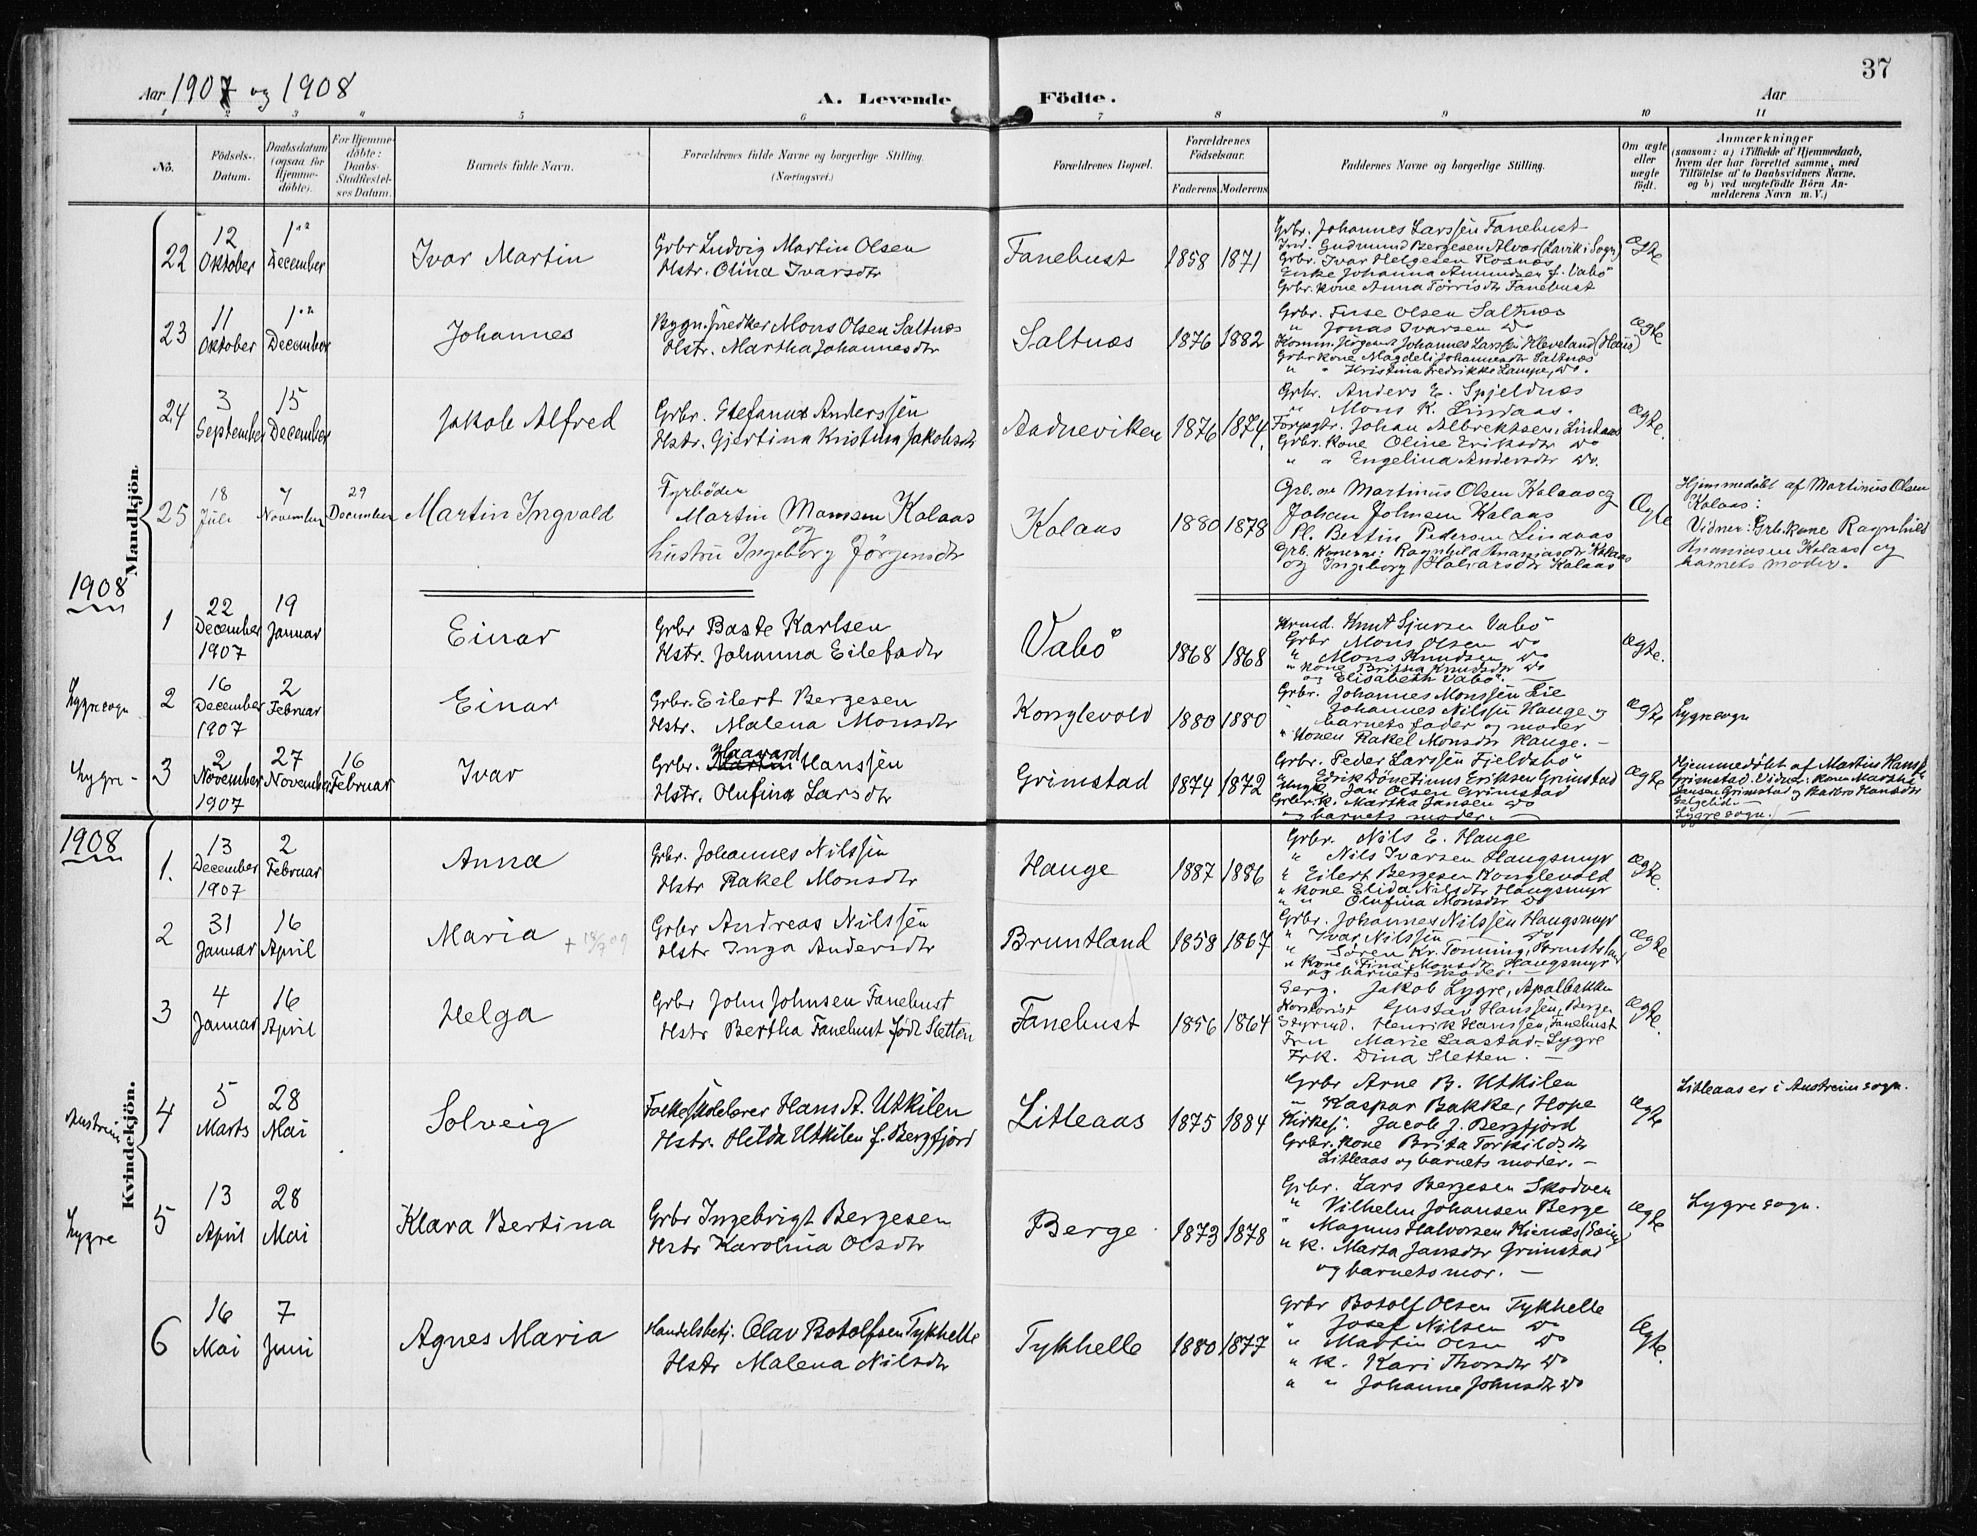 37
Aar 1907 og 1908
A. Levende Födte.
Aar
1 2 3 4 5 6 7 8 9 10 11
No.
Födsels-Datum.
Daabsdatum (ogsaa for Hjemmedöbte).
For Hjemmedöbte: Daabs-Stadfæstelses Datum.
Barnets fulde Navn.
Forældrenes fulde Navne og borgerlige Stilling.
(Næringsvei.)
Forældrenes Bopæl.
Forældrenes Födselsaar.
Faderens Moderens
Faddernes Navne og borgerlige Stilling.
Om ægte eller uægte födt.
Anmærkninger
(saasom: a) i Tilfælde af Hjemmedaab,
hvem der har forrettet samme, med
Tilföielse af to Daabsvidners Navne,
og b) ved uægtefödte Börn An-
melderens Navn m. V.)
Mandkjön.
22
12 Oktober
1 December
Ivar Martin
Grbr Ludvig Martin Olsen
Hstr. Olina Ivarsdtr
Fanebust
1858 1871
Grbr. Johannes Larssen Fanebust
Ind. Gudmund Bergesen Alvor (Lavik i Sogn)
Grbr. Ivar Helgesen Rosnæs
Enke Johanna Amundsen f. Vabö
Grbr. kone Anna Torrisdtr Fanebust
Ægte
23
11 Oktober
1 December
Johannes
Bygn.snedker Mons Olsen Saltnæs
Hstr. Martha Johannesdtr
Saltnæs
1876 1882
Grbr. Fuse Olsen Saltnæs
" Jonas Ivarsen do
Johannes Larssen Kleveland (Haus)
Grbr kone Magdeli Johannesdtr Saltnæs
" " Kristina Fredrikke Lampe, do.
Ægte
24
3 September
15 December
Jakob Alfred
Grbr. Stefanus Anderssen
Hstr. Gjertina Kristina Jakobsdtr
Aadneviken
1876 1874.
Grbr. Anders E. Spjeldnæs
" Mons K. Lindaas.
Forpgtr. Johan Albrektsen, Lindaas
Grbr. kone Oline Eriksdtr do
" " Engelina Andersdtr do.
Ægte.
25
18 Juli
7 November
29 December
Martin Ingvald
Fyrböder
Martin Monsen Kolaas
og
hustru Ingeborg Jörgensdtr
Kolaas
1880 1878
Grb.ne Martinus Olsen Kolaas og
Johan Johnsen Kalaas
Pl. Bertin Pedersen Lindaas
Grb. konerne: Ragnhild Ananiasdtr Kolaas
og Ingeborg Halvarsdtr Kalaas
Ægte
Hjemmedöbt af Martinus Olsen
Kolaas:
Vidner: Grb. kone Ragnhild
Ananiasen Kolaas og
barnets moder.
1908
1
22 December 1907
19 Januar
Einar
Grbr Baste Karlsen
Hstr. Johanna Eilefsdtr
Vabö
1868 1868
Knut Sjursen Vabö
Grbr Mons Olsen do
" Mons Knudsen do
" kone Britha Knudsdtr do
og Elisabeth Vabö. —
Ægte.
Lygresogn
2
16 December 1907
2 Februar
Einar
Grbr. Eilert Bergesen
Hstr. Malena Monsdtr
Konglevold
1880 1880
Grbr. Johannes Monssen Lie
" Johannes Nilssen Hauge og
barnets fader og moder
" Konen Rakel Monsdtr Hauge. —
Ægte
Lygresogn
Lygre-
3
2 November 1907
27 November
16 Februar
Ivar
Haavard
Grbr. Martin Hanssen
Hstr. Olufina Larsdtr
Grimstad
1874 1872
Grbr. Peder Larssen Fjeldsbö
" Erik Dönetinus Eriksen Grimstad
Ungk. Jan Olsen Grimstad
Grbr. k. Martha Jansen do
og barnets moder. —
Ægte
Hjemmedöbt af Martius Hanss.
Grimstad. Vidner: kone Martha
Jansen Grimstad og Barbro Hansdtr
Helgelid —
Lygresogn. —
1908
Kvindekjön.
1.
13 December 1907
2 Februar
Anna
Grbr. Johannes Nilssen
Hstr Rakel Monsdtr
Hauge
1887 1886
Grbr. Nils E. Hauge
" Nils Ivarsen Haugsmyr
" Eilert Bergesen Konglevold
" kone Elida Nilsdtr Haugsmyr
" " Olufina Monsdtr do
Ægte.
2
31 Januar
16 April
Maria
Grbr Andreas Nilssen
Hstr Inga Andersdtr
Bruntland
1858 1867
Grbr. Johannes Nilssen Haugsmyr
" Ivar Nilssen do
" Sören Kr. Tonning, Bruntland
" kone "Tina" Monsdtr Haugsmyr
og barnets moder. —
Ægte
3
4 Januar
16 April
Helga
Grbr John Johnsen Fanebust
Hstr Bertha Fanebust född Sletten
Fanebust
1856 1864
Serg. Jakob Lygre, Apalbakken
Kontorist Gustav Hanssen, Bergen
Styrmd. Henrik Hanssen, Fanebust
Fru Marie Laastad-Lygre
Frk. Dina Sletten. —
Ægte.
Austreim
4
5 Marts
28 Mai
Solveig
Folkeskolelærer Hans A. Utkilen
Hstr. Hilda Utkilen f. Bergfjord
Litleaas
1875 1884
Grbr Arne B. Utkilen
" Kaspar Bakke, Hope
Kirkesj. Jacob J. Bergfjord
Grbr. kone Brita Torkildsdtr
Litleaas og barnets moder. —
Ægte
Litleaas er i Austreim sogn.
Lygre
5
13 April
28 Mai
Klara Bertina
Grbr Ingebrigt Bergesen
Hstr Karolina Olsdtr
Berge
1873 1878
Grbr. Lars Bergesen Skodven
" Vilhelm Johansen Berge
" Magnus Halvorsen Kienæs
" k. Marta Jansdtr Grimstad
og barnets mor. —
Ægte
Lygre sogn.
6
16 Mai
7 Juni
Agnes Maria
Handelsbetj. Olav Botolfsen Tykhelle
Hstr Malena Nilsdtr
Tykhelle
1880 1877
Grbr Botolf Olsen Tykhelle
" Josef Nilsen do
" Martin Olsen do
" k. Kari Thorsdtr do
" " Johanne Johnsdtr do
Ægte.